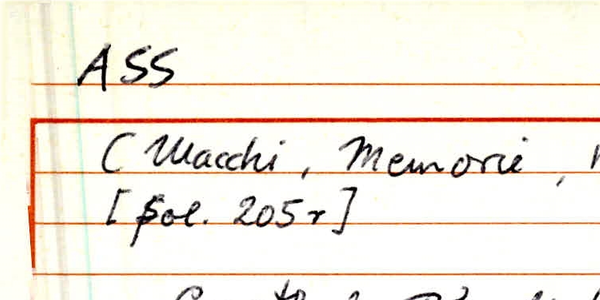 ASS
(Macchi, Memorie,
[fol. 205r]